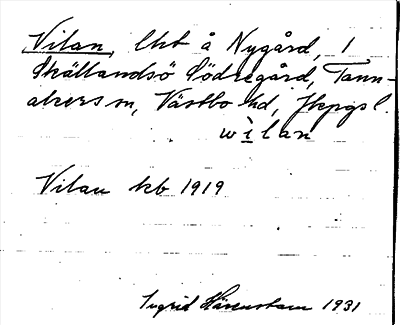 Vilan, lht å Nygård, 1
Skällandsö Södregård, Tann-
åkers sn, Västbo hd, Jkpgs l.
wìlan
Vilan kb 1919
Ingrid Härenstam 1931